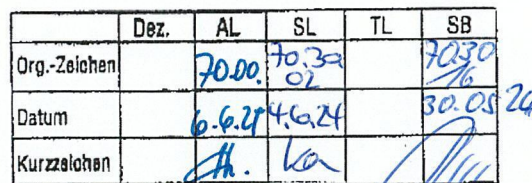 Dez. AL SL TL SB
Org.-Zeichen 70.00. 70.30 02 70.30 16
Datum 6.6.24 4.6.24 30.05 24
Kurzzeichen